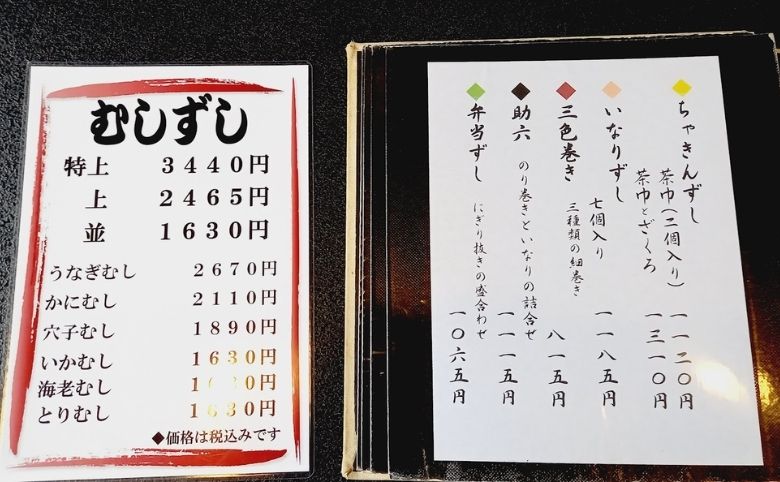 むしずし
特上 3440円
上 2465円
並 1630円
うなぎむし 2670円
かにむし 2110円
穴子むし 1890円
いかむし 1630円
海老むし
とりむし 1630円
◆価格は税込みです
ちゃきんずし
茶巾(二個入り) 一一二〇円
茶巾とざくろ 一三一〇円
いなりずし
七個入り 一一八五円
三色巻き
三種類の細巻き 八一五円
助六
のり巻きといなりの詰合せ 一一一五円
弁当ずし
にぎり抜きの盛合わせ 一〇六五円